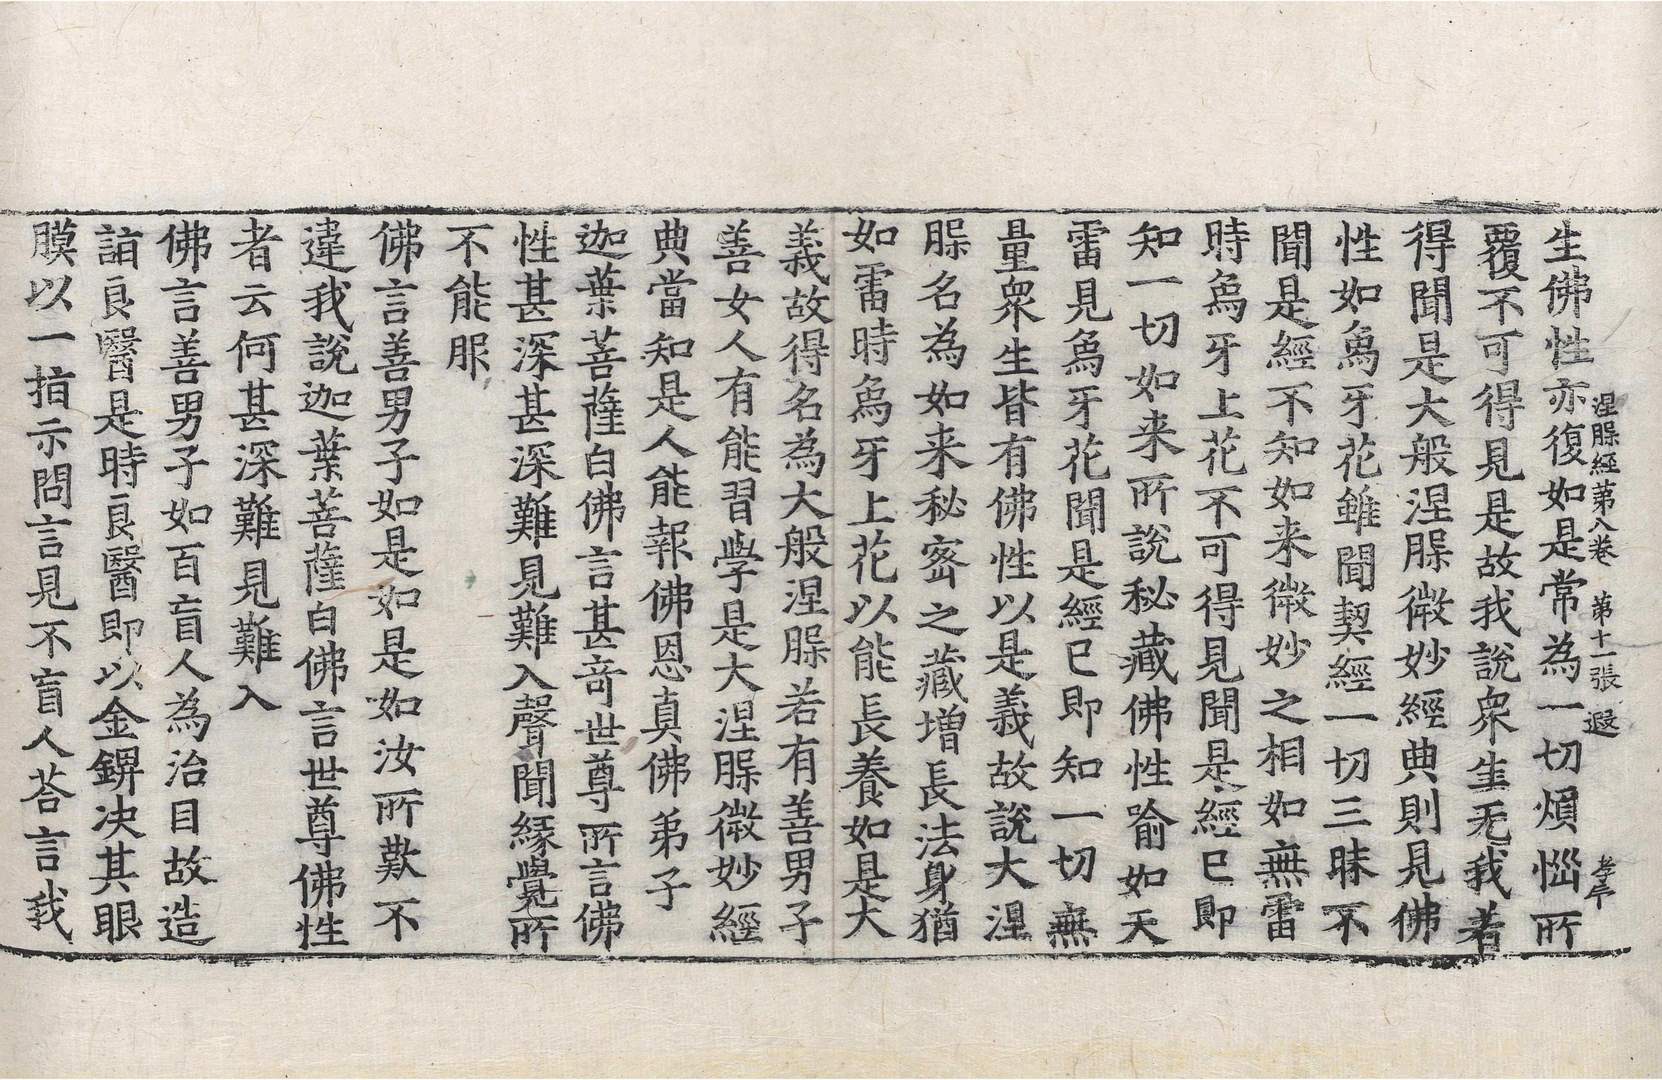 涅槃經第八卷 第十一張 遐
生佛性亦復如是常為一切煩惱所
覆不可得見是故我說衆生无我若
得聞是大般涅槃微妙經典則見佛
性如象牙花雖聞契經一切三昧不
聞是經不知如来微妙之相如無雷
時象牙上花不可得見聞是經已即
知一切如来所說秘藏佛性喻如天
雷見象牙花聞是經已即知一切無
量衆生皆有佛性以是義故說大涅
槃名為如来秘密之藏增長法身猶
如雷時象牙上花以能長養如是大
義故得名為大般涅槃若有善男子
善女人有能習學是大涅槃微妙經
典當知是人能報佛恩真佛弟子
迦葉菩薩白佛言甚竒世尊所言佛
性甚深甚深難見難入聲聞緣覺所
不能服
佛言善男子如是如是如汝所歎不
違我說迦葉菩薩白佛言世尊佛性
者云何甚深難見難入
佛言善男子如百盲人為治目故造
詣良醫是時良醫即以金錍决其眼
膜以一指示問言見不盲人荅言我